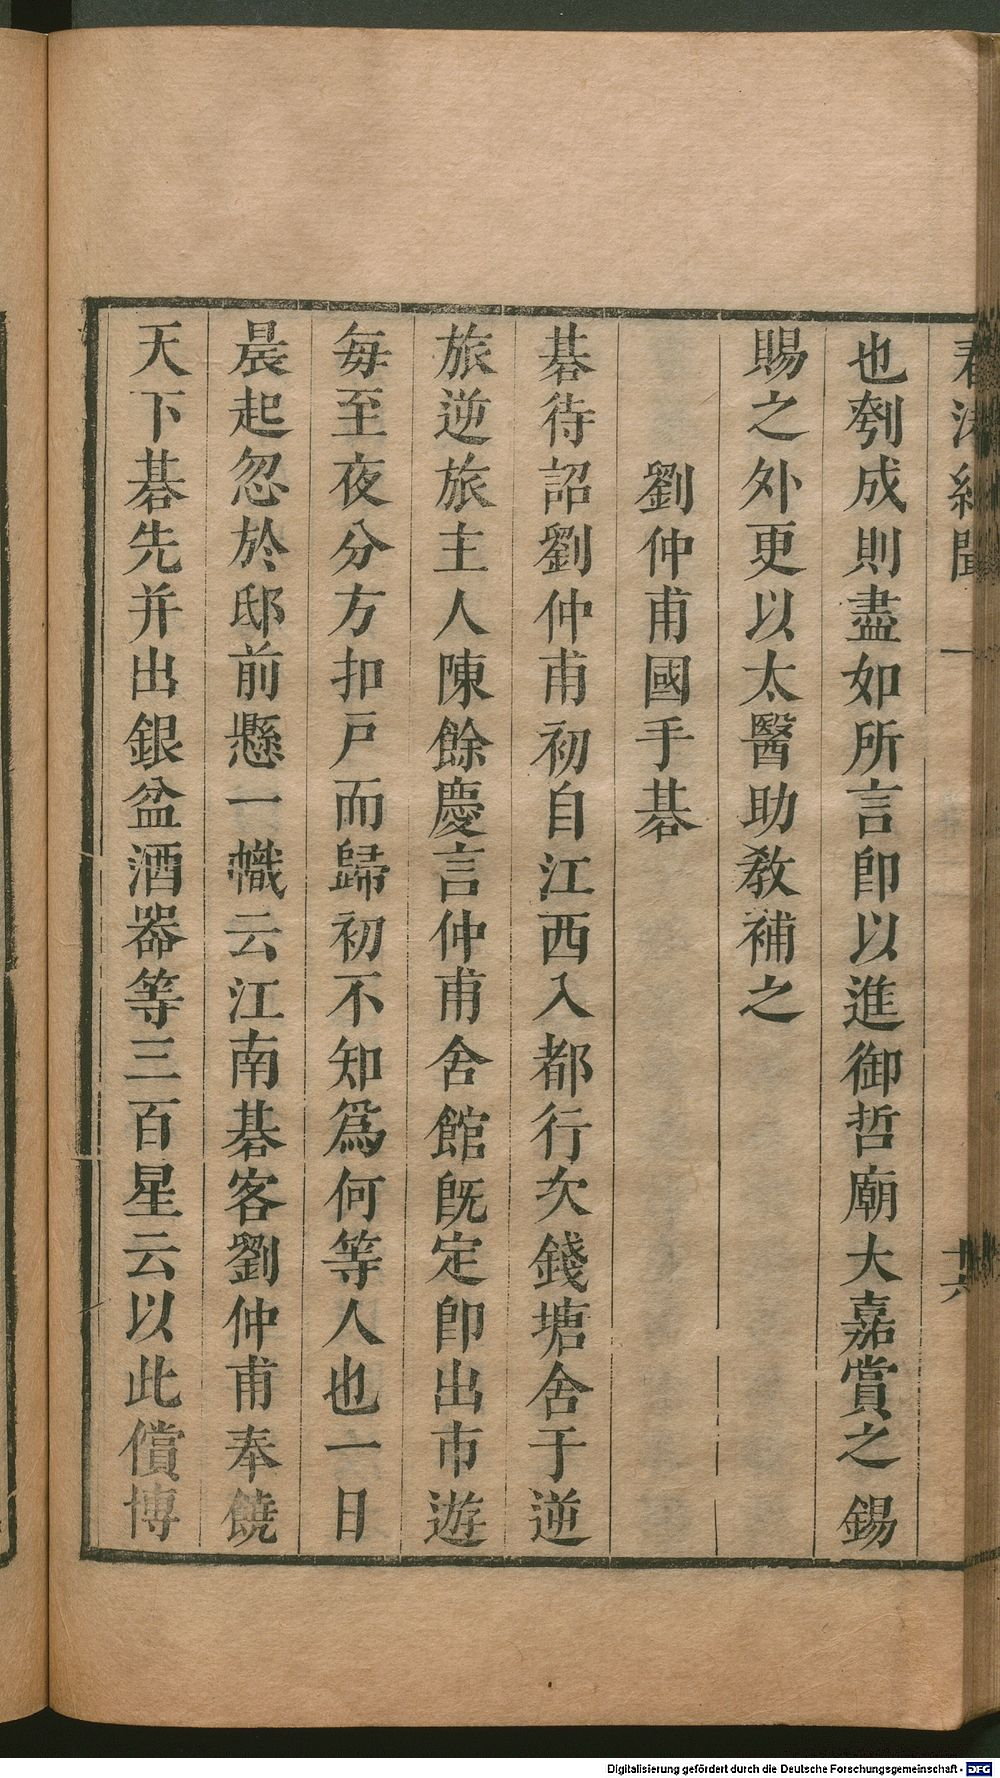 春渚紀聞 二 十六
也剳成則盡如所言卽以進御哲廟大嘉賞之錫
賜之外更以太醫助敎補之
劉仲甫國手棊
碁待詔劉仲甫初自江西入都行次錢塘舍于逆
旅逆旅主人陳餘慶言仲甫舍館旣定卽出市遊
每至夜分方扣戸而歸初不知爲何等人也一日
晨起忽於邸前懸一幟云江南碁客劉仲甫奉饒
天下碁先并出銀盆酒器等三百星云以此償博
Digitalisierung gefördert durch die Deutsche Forschungsgemeinschaft - DFG